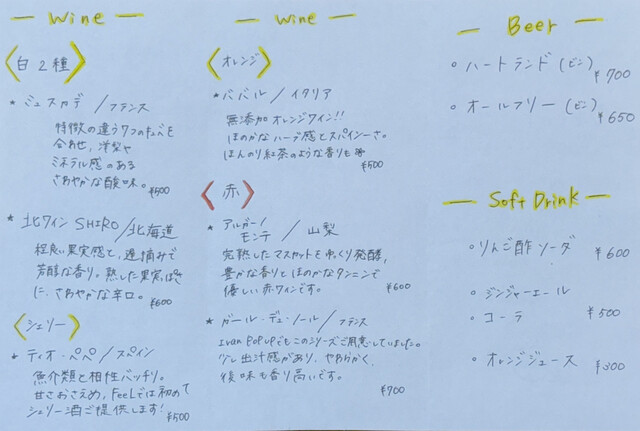 Wine
白2種
* ミュスカデ/フランス
特徴の違う7つのキュベを
合わせ、洋梨や
ミネラル感のある
さわやかな酸味。 ¥500
* 北ワイン SHIRO/北海道
程良い果実感と、遅摘みで
芳醇な香り。熟した果実、
に、さわやかな辛口。 ¥600
シェリー
* ティオ・ペペ/スペイン
魚介類と相性バッチリ。
甘さおさえめ、FeeLでは初めて
シェリー酒ご提供します! ¥500
Wine
オレンジ
* ババル/イタリア
無添加オレンジワイン!!
ほのかなハーブ感とスパイシーさ。
ほんのり紅茶のような香りも
¥500
赤
* アルガーノ
モンテ/山梨
完熟したマスカットをゆっくり発酵、
豊かな香りとほのかなタンニンで
優しい赤ワインです。 ¥600
* ガール・デュ・ソール/フランス
Ivan POPUPでもこのシリーズご用意していました。
少し出汁感があり、やわらかく、
後味も香り高いです。
¥700
Beer
• ハートランド(ビン) ¥700
• オールフリー(ビン) ¥650
Soft Drink
• りんご酢ソーダ ¥600
• ジンジャーエール
• コーラ ¥500
• オレンジジュース ¥300